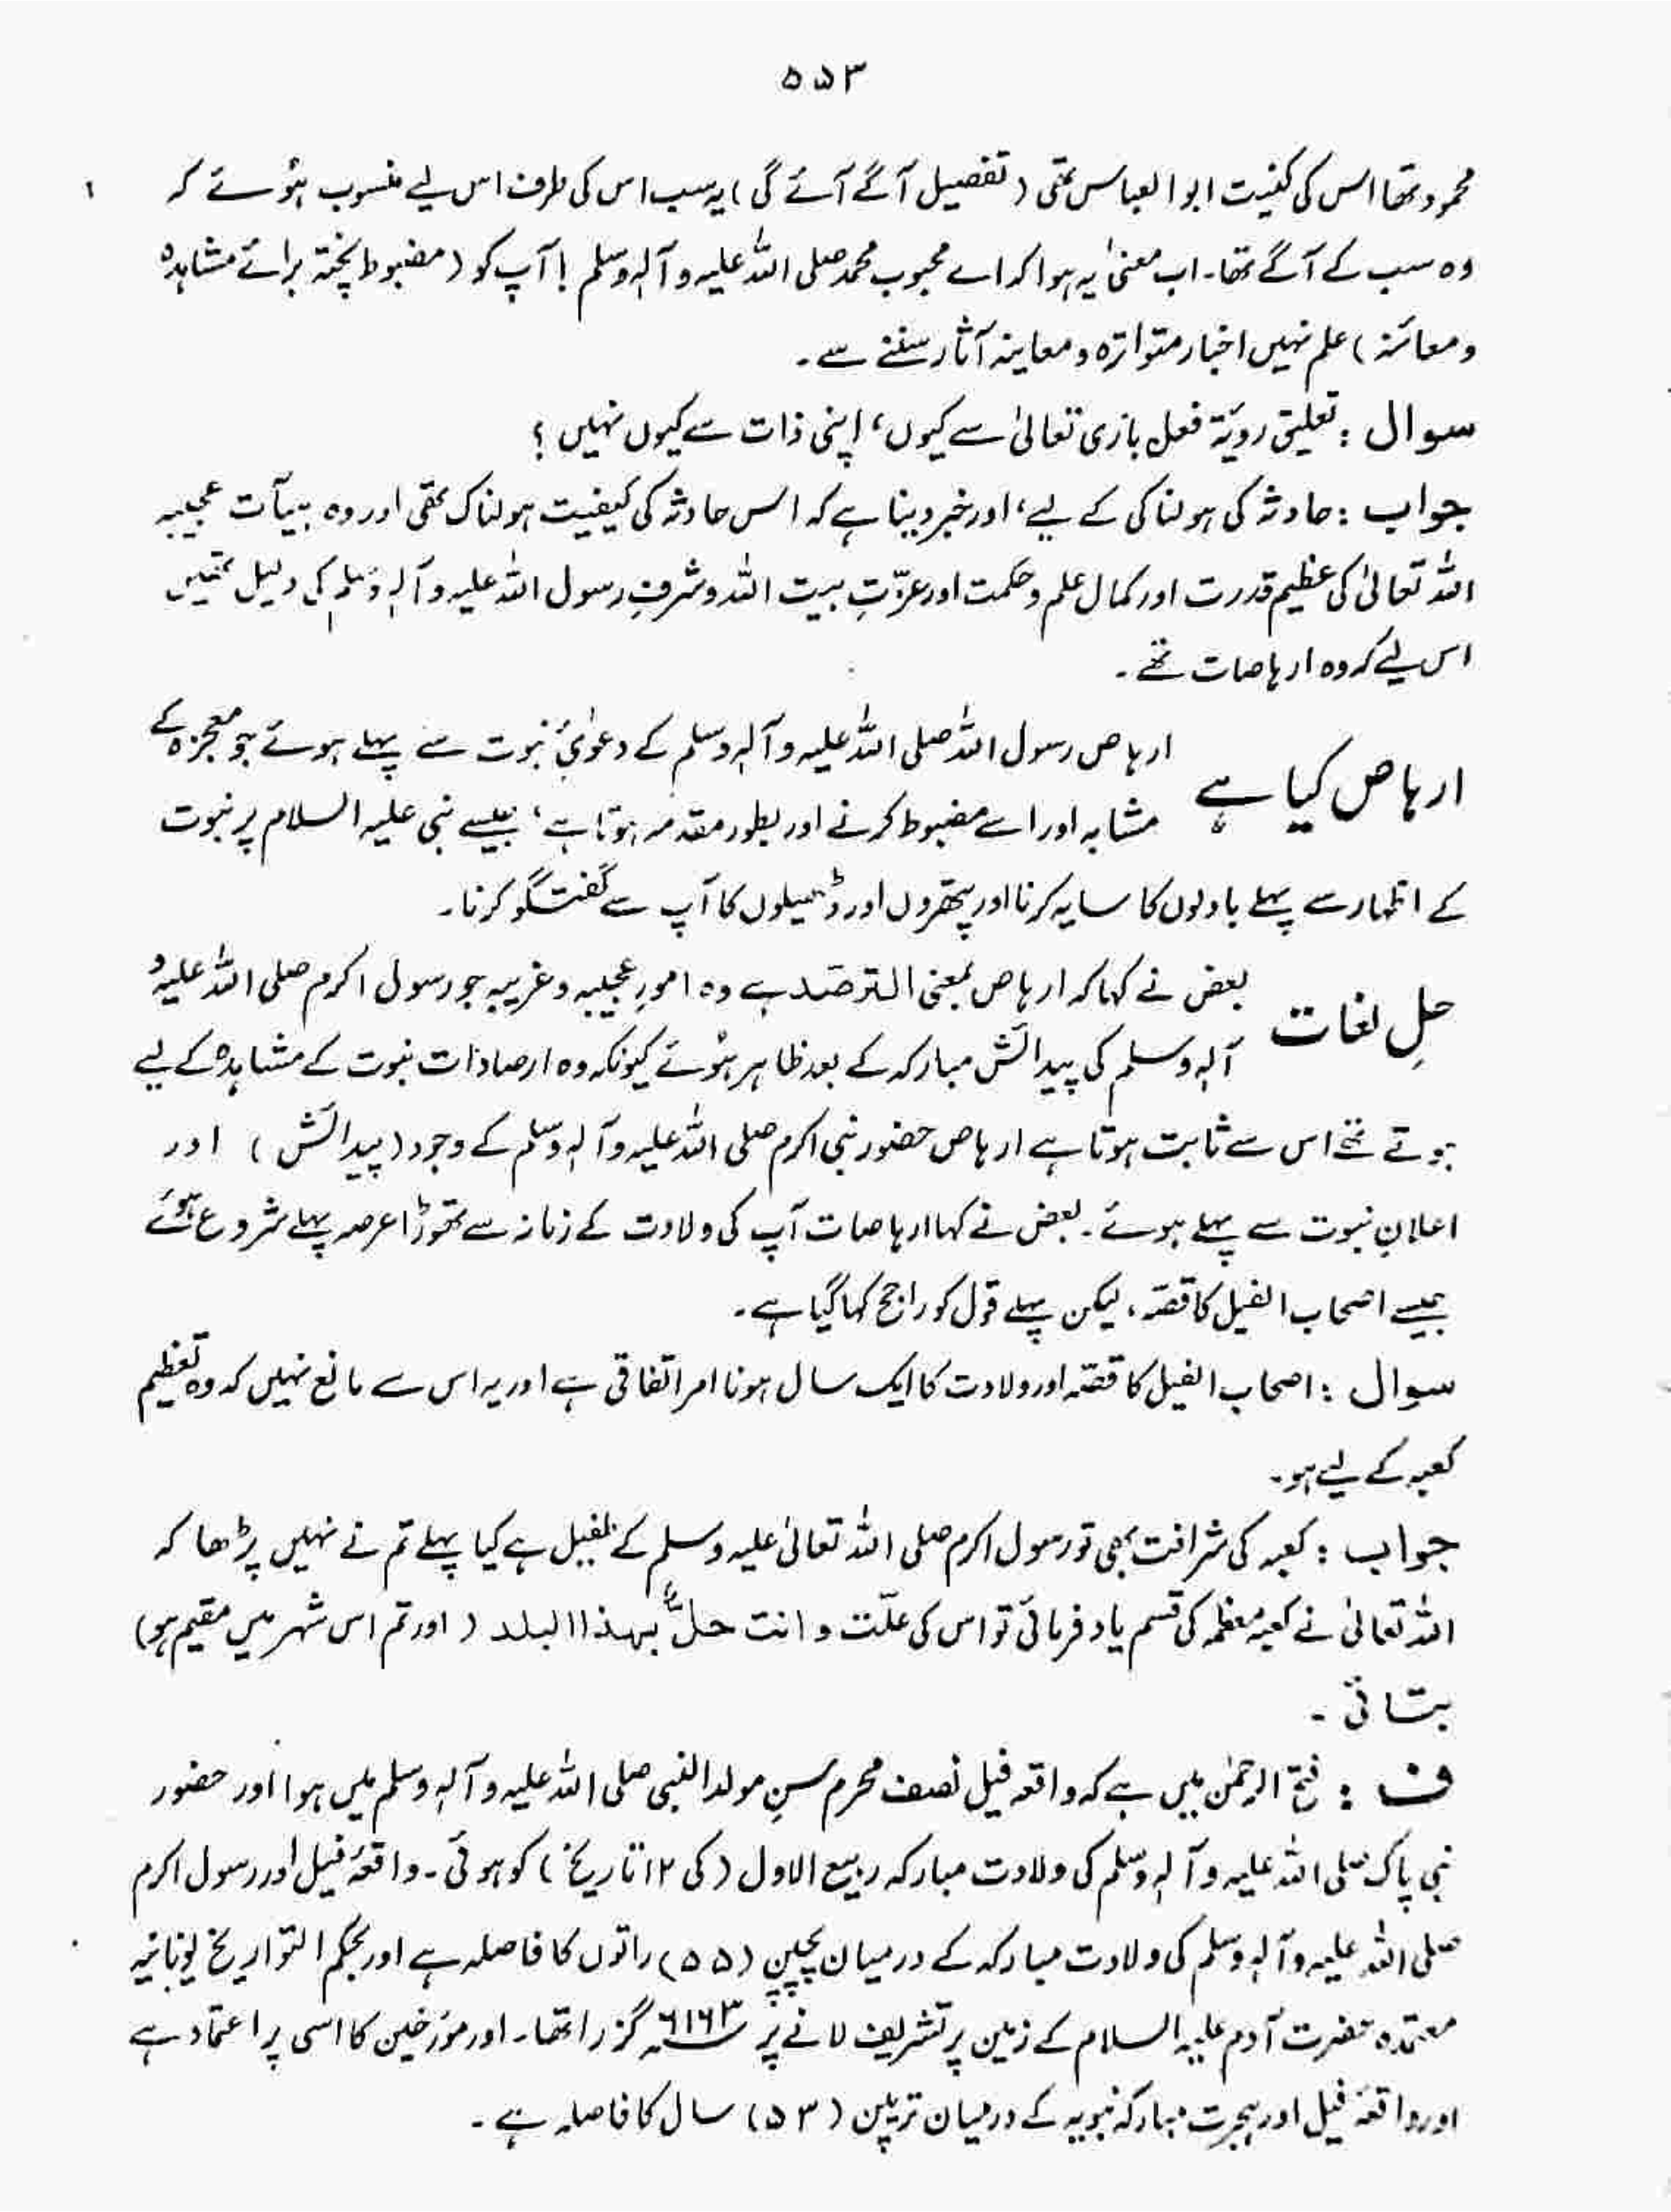 ۵۵۳
محمود تھا اس کی کنیت ابوالعباس تھی (تفصیل آگے آئے گی) یہ سب اس کی طرف اس لیے منسوب ہوئے کہ
وہ سب کے آگے تھا۔ اب معنیٰ یہ ہوا کہ اے محبوب محمد صلی اللہ علیہ وآلہٖ وسلم! آپ کو (مضبوط پختہ برائے مشاہدہ
و معائنہ) علم نہیں اخبار متواترہ و معاینہ آثار سننے سے۔
سوال : تعلیق رویۃ فعل باری تعالیٰ سے کیوں، اپنی ذات سے کیوں نہیں؟
جواب : حادثہ کی ہولناکی کے لیے، اور خبر دینا ہے کہ اس حادثہ کی کیفیت ہولناک تھی اور وہ ہیآت عجیبہ
اللہ تعالیٰ کی عظیم قدرت اور کمال علم و حکمت اور عزّتِ بیت اللہ و شرفِ رسول اللہ علیہ وآلہٖ وسلم کی دلیل تھیں
اس لیے کہ وہ ارہاصات تھے۔
ارہاص کیا ہے
ارہاص رسول اللہ صلی اللہ علیہ وآلہٖ وسلم کے دعوٰیٔ نبوت سے پہلے ہوئے جو معجزہ کے
مشابہ اور اسے مضبوط کرنے اور بطور مقدمہ ہوتا ہے، جیسے نبی علیہ السلام پر نبوت
کے اظہار سے پہلے بادلوں کا سایہ کرنا اور پتھروں اور ڈھیلوں کا آپ سے گفتگو کرنا۔
حلِ لغات
بعض نے کہا کہ ارہاص بمعنی الترصّد ہے وہ امورِ عجیبہ و غریبہ جو رسول اکرم صلی اللہ علیہ و
آلہٖ وسلم کی پیدائش مبارکہ کے بعد ظاہر ہوئے کیونکہ وہ ارصادات نبوت کے مشاہدہ کے لیے
ہوتے تھے اس سے ثابت ہوتا ہے ارہاص حضور نبی اکرم صلی اللہ علیہ وآلہٖ وسلم کے وجود (پیدائش) اور
اعلانِ نبوت سے پہلے ہوئے۔ بعض نے کہا ارہاصات آپ کی ولادت کے زمانہ سے تھوڑا عرصہ پہلے شروع ہوئے
جیسے اصحاب الفیل کا قصّہ، لیکن پہلے قول کو راجح کہا گیا ہے۔
سوال : اصحاب الفیل کا قصّہ اور ولادت کا ایک سال ہونا امر اتفاقی ہے اور یہ اس سے مانع نہیں کہ وہ تعظیم
کعبہ کے لیے ہو۔
جواب : کعبہ کی شرافت بھی تو رسول اکرم صلی اللہ تعالیٰ علیہ وسلم کے طفیل ہے کیا پہلے تم نے نہیں پڑھا کہ
اللہ تعالیٰ نے کعبہ معظمہ کی قسم یاد فرمائی تو اس کی علّت و انت حلٌّ بہذا البلد (اور تم اس شہر میں مقیم ہو)
بتائی۔
ف : فتح الرحمٰن میں ہے کہ واقعہ فیل نصف محرم سنِ مولد النبی صلی اللہ علیہ وآلہٖ وسلم میں ہوا اور حضور
نبی پاک صلی اللہ علیہ وآلہٖ وسلم کی ولادت مبارکہ ربیع الاول (کی ۱۲ تاریخ) کو ہوئی۔ واقعۂ فیل اور رسول اکرم
صلی اللہ علیہ وآلہٖ وسلم کی ولادت مبارکہ کے درمیان پچپن (۵۵) راتوں کا فاصلہ ہے اور بحکم التواریخ یونانیہ
معتمدہ حضرت آدم علیہ السلام کے زمین پر تشریف لانے پر ۶۱۶۳ گزرا تھا۔ اور مورخین کا اسی پر اعتماد ہے
اور واقعۂ فیل اور ہجرت مبارکہ نبویہ کے درمیان ترپین (۵۳) سال کا فاصلہ ہے۔